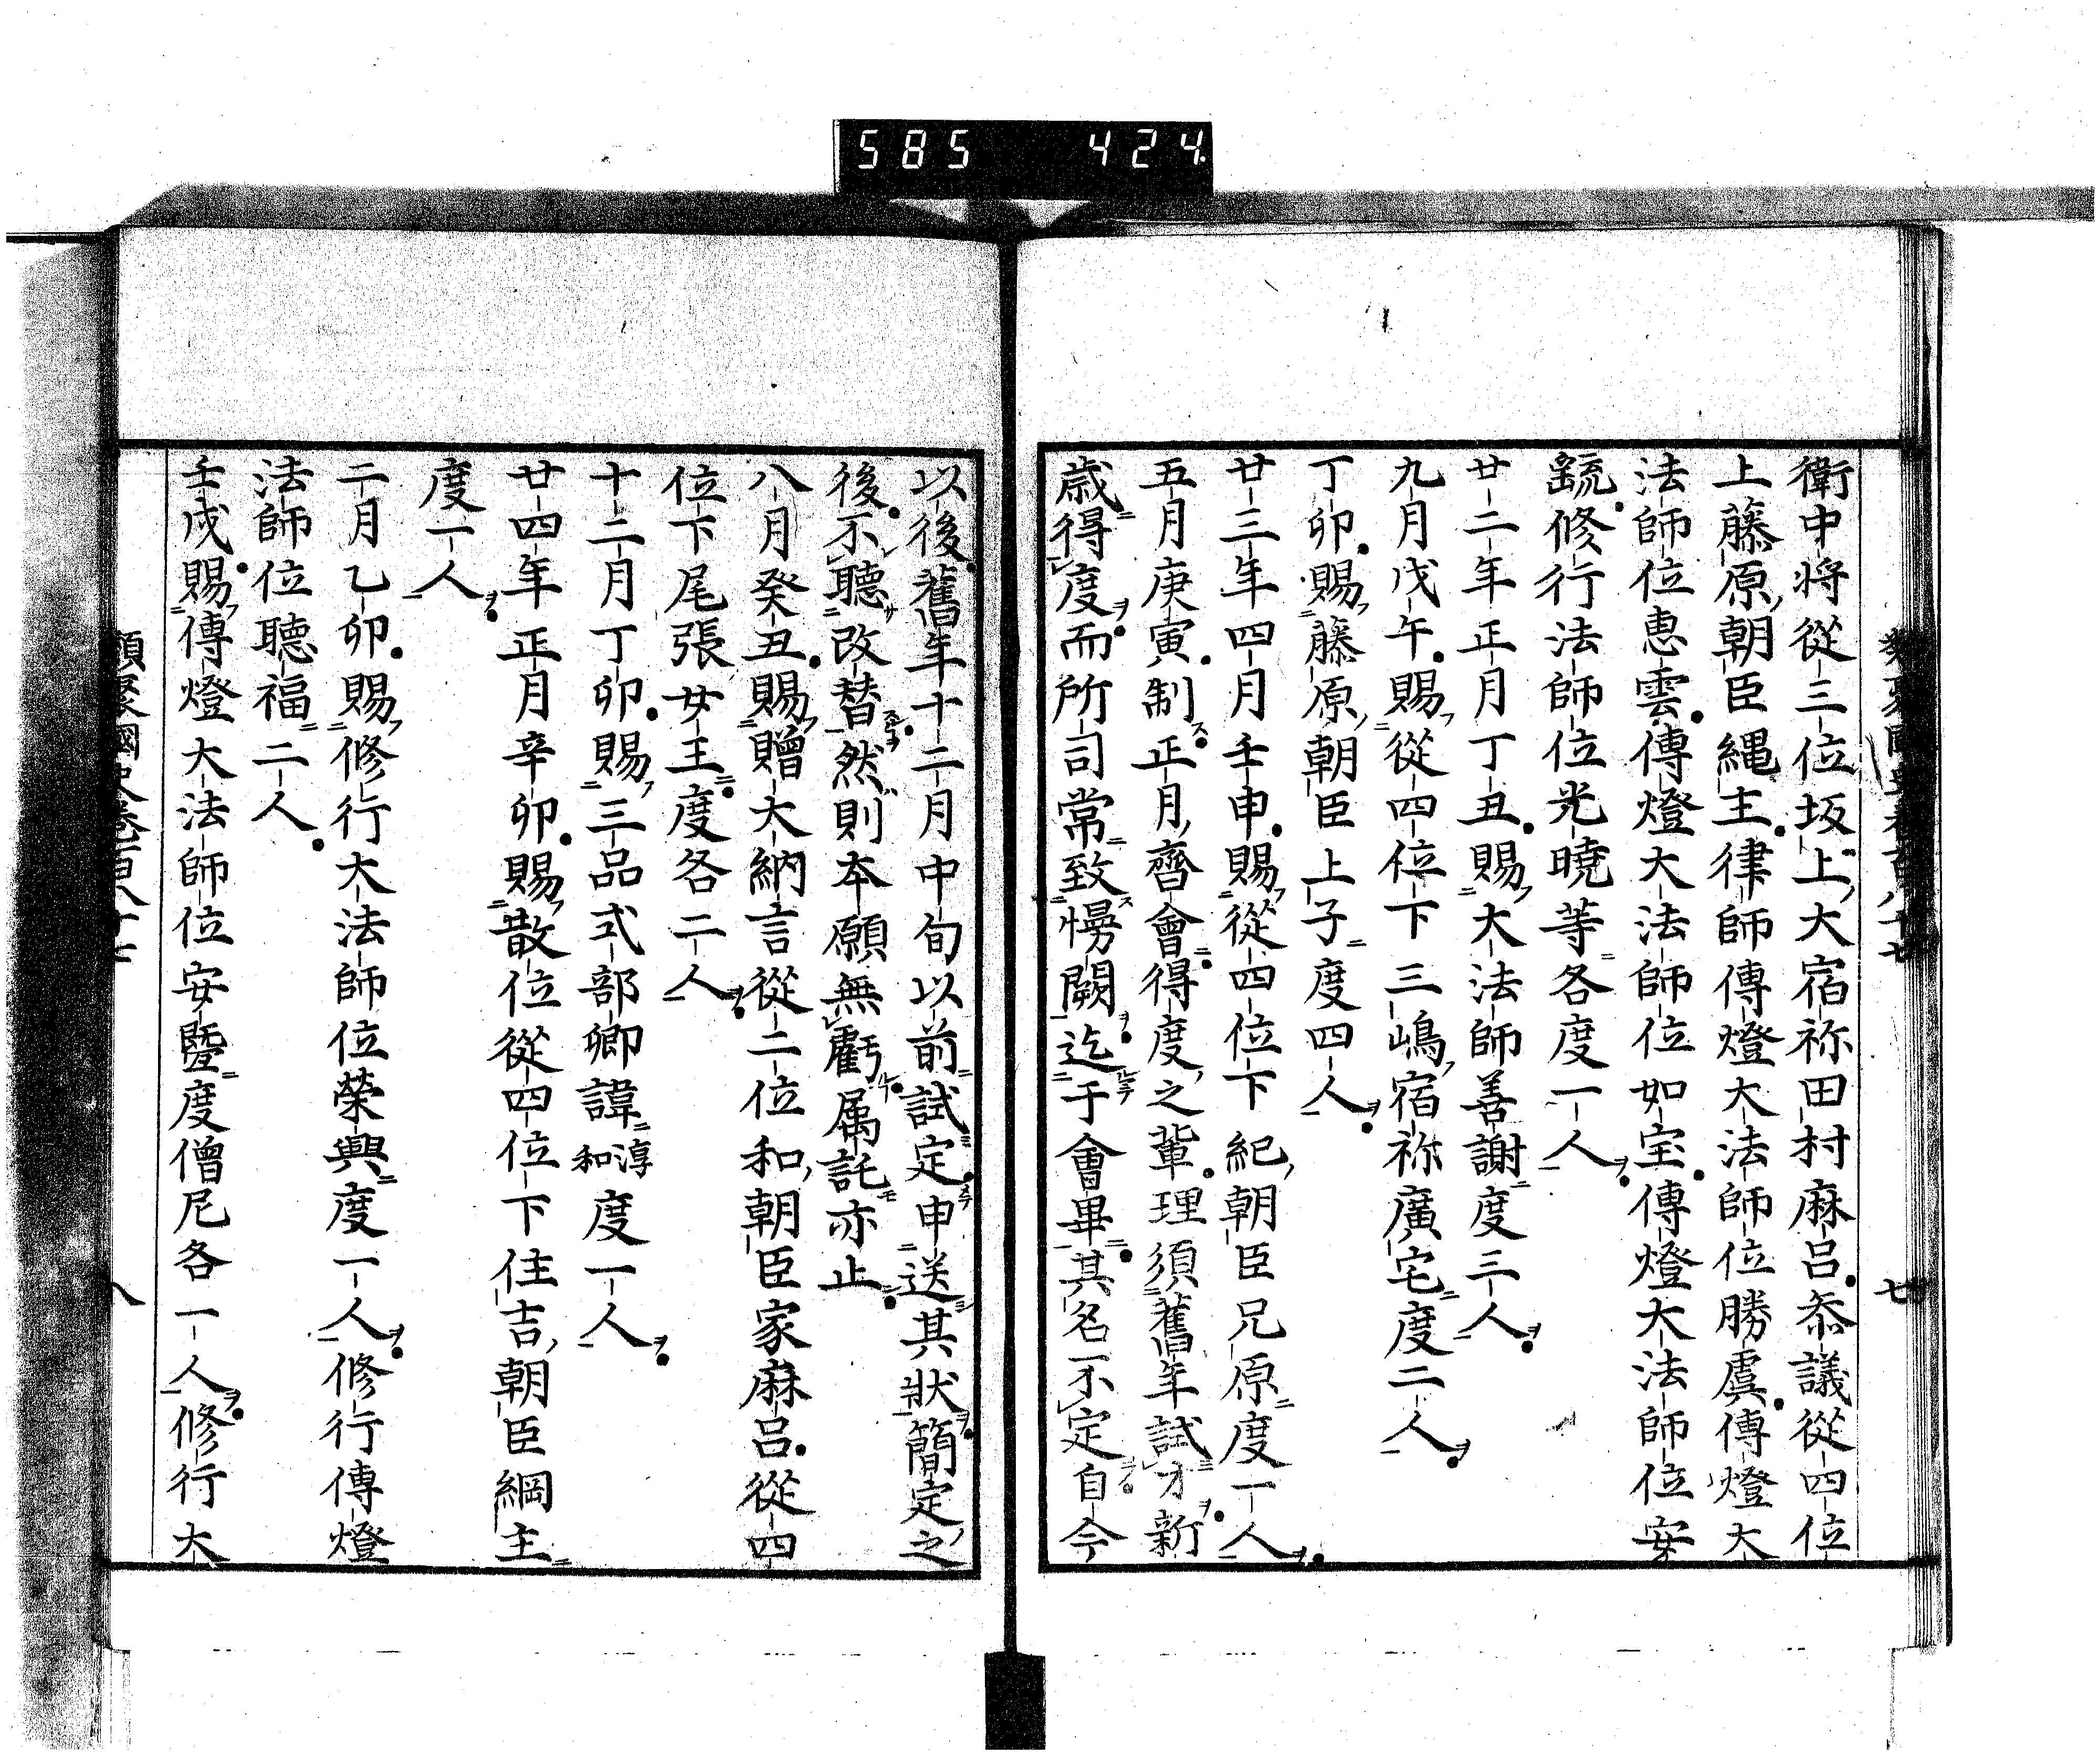 585 424
衛中将從三位坂上大宿祢田村麻呂叅議從四位
上藤原朝臣縄主律師傳燈大法師位勝虞傳燈大
法師位恵雲傳燈大法師位如宝傳燈大法師位安
毓修行法師位光曉等各度一人ヲ
廿二年正月丁丑賜大法師善謝度三人ヲ
九月戊午賜從四位下三嶋宿祢廣宅度二人ヲ
丁卯賜藤原朝臣上子度四人ヲ
廿三年四月壬申賜從四位下紀朝臣兄原度一人ヲ
五月庚寅制正月齊會得度之軰理須舊年試才新
歳得度而所司常致㦬闕迄于會畢其名不定自今
七
以後舊年十二月中旬以前試定申送其狀簡定之
後不聽改替然則本願無虧属託亦止
八月癸丑賜贈大納言從二位和朝臣家麻呂從四
位下尾張女王度各二人ヲ
十二月丁卯賜三品式部卿諱淳和度一人ヲ
廿四年正月辛卯賜散位從四位下住吉朝臣綱主
度一人ヲ
二月乙卯賜修行大法師位榮興度一人ヲ修行傳燈
法師位聽福二人
壬戌賜傳燈大法師位安曁度僧尼各一人ヲ修行大
類聚國史卷百八十七
八